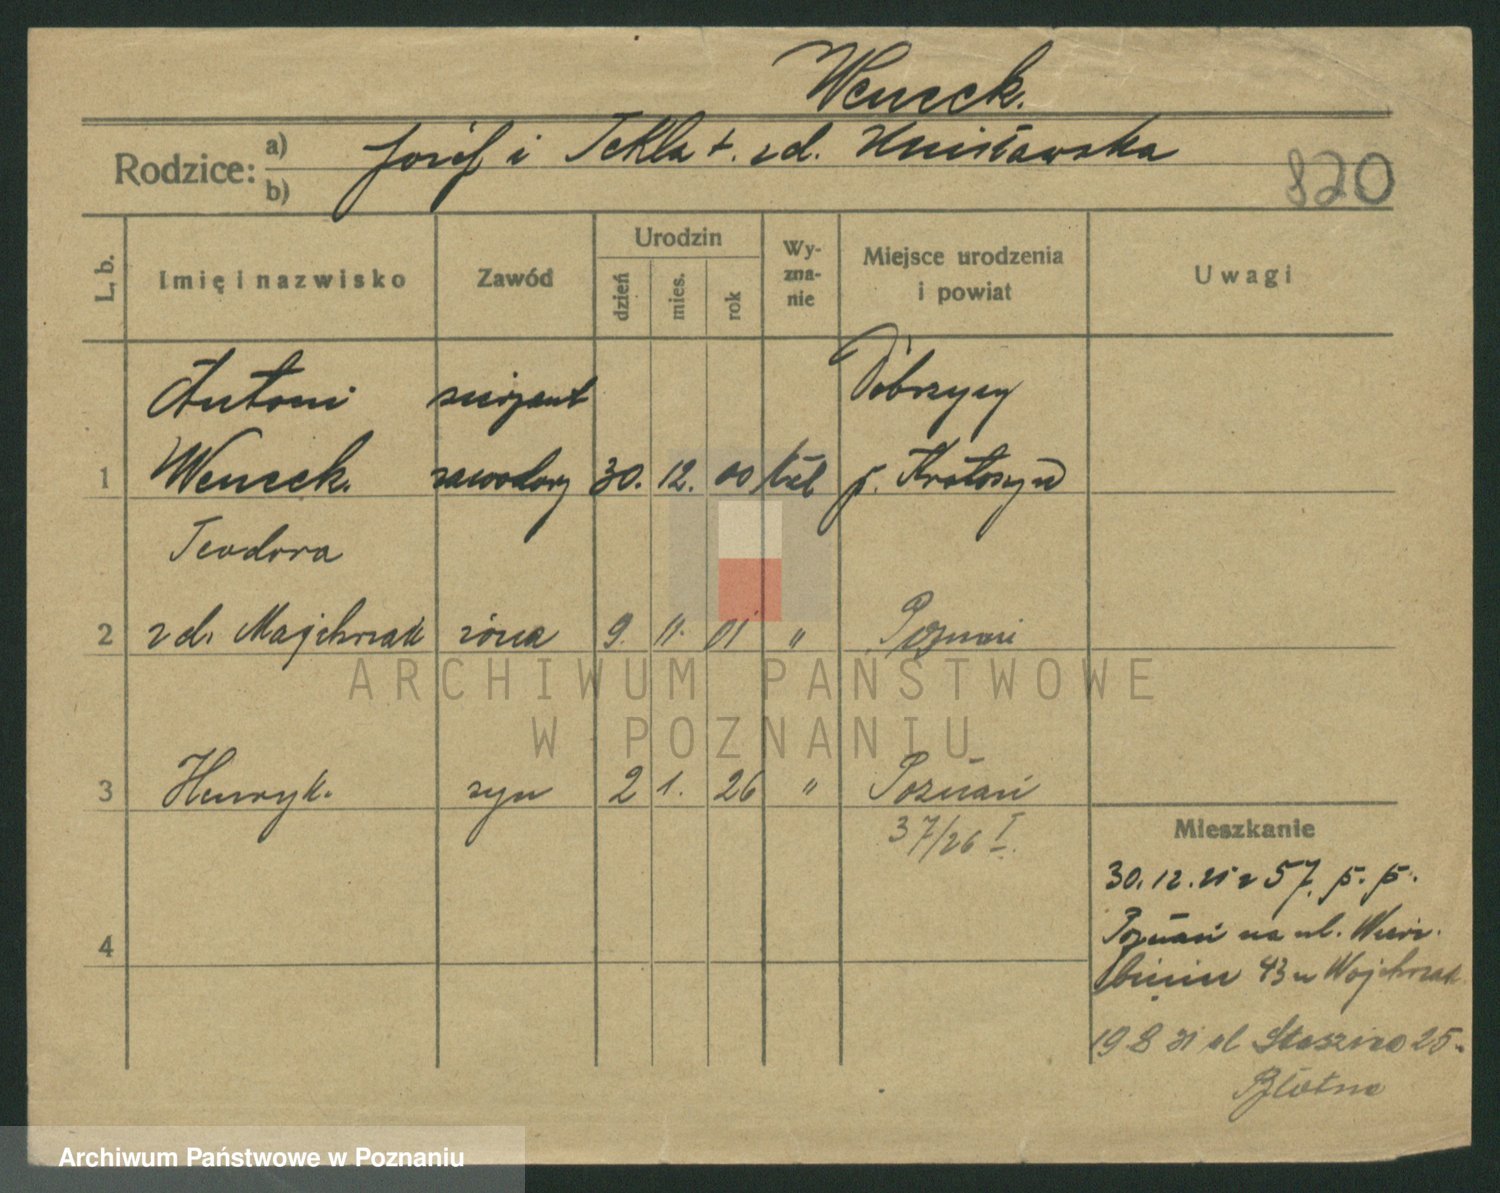 Wencek.
Rodzice: a) Józef i Tekla t. zd.
b)
820
L. b.
Imię i nazwisko
Zawód
Urodzin
dzień
mies.
rok
Wy-
zna-
nie
Miejsce urodzenia
i powiat
Uwagi
Antoni sierżant Dobrzycy
1 Wencek. zawodowy 30. 12. 00 p. Krotoszyn
Teodora
2 zd. Majchrzak żona 9. 11. 01 " Poznań
3 Henryk. syn 2 1. 26 " Poznań
37/26 I.
4
Mieszkanie
30.12. z 57. p. p.
Poznań na ul. Wierz-
bięcice 43 u Wojchrzak
19 8 31 ul Staszica 25.
ARCHIWUM PAŃSTWOWE
W POZNANIU
Archiwum Państwowe w Poznaniu